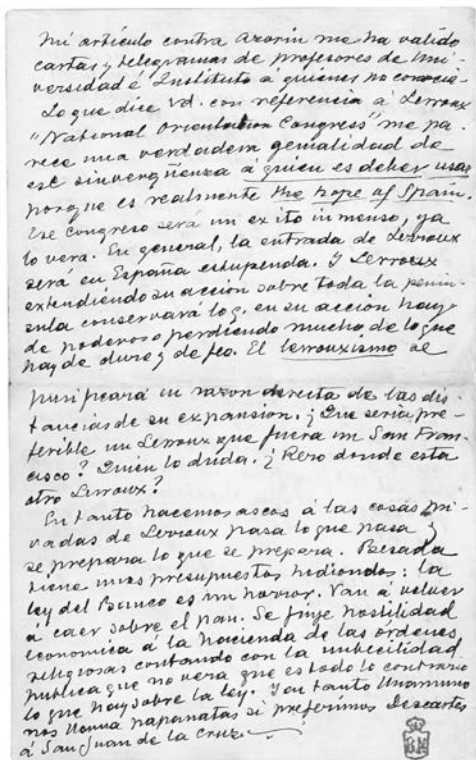 Mi artículo contra Azorín me ha valido
cartas y telegramas de profesores de Uni-
versidad é Instituto a quienes no conocia-
Lo que dice Vd. con referencia á Lerroux
"National Orientation Congress" me pa-
rece una verdadera genialidad de
ese sinvergüenza á quien es deber usar
porque es realmente the hope of Spain.
Ese congreso será un exito inmenso, ya
lo vera. En general, la entrada de Lerroux
será en España estupenda. Y Lerroux
extendiendo su acción sobre toda la penin-
sula conservará lo q. en su acción hay
de poderoso perdiendo mucho de lo que
hay de duro y de feo. El lerrouxismo se
purificará en razon directa de las dis-
tancias de su expansion. ¿Que seria pre-
ferible un Lerroux que fuera un San Fran-
cisco? Quien lo duda. ¿Pero donde esta
otro Lerroux?
En tanto hacemos ascos á las cosas pri-
vadas de Lerroux pasa lo que pasa y
se prepara lo que se prepara. Besada
tiene unos presupuestos hediondos: la
ley del Banco es un horror. Van á volver
á caer sobre el pan. Se finje hostilidad
economica á la hacienda de las órdenes
religiosas contando con la imbecilidad
publica que no vera que es todo lo contrario
lo que hay sobre la ley. Y en tanto Unamuno
nos llama papanatas si preferimos Descartes
á San Juan de la Cruz.